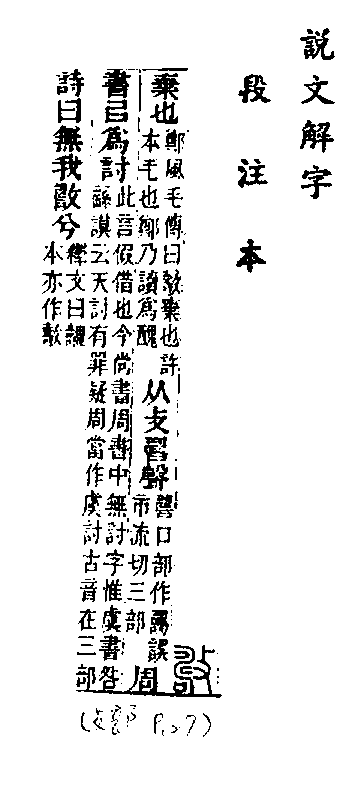 說文解字
段注本
棄也
鄭風毛傳曰棄也許
本毛也鄭乃讀爲醜
从攴𠷎聲
口部作誤
市流切三部
周
書㠯爲討
此言假借也今尚書周書中無討字惟虞書咎
繇謨云天討有罪疑周當作虞討古音在三部
詩曰無我兮
釋文曰
本亦作
(攴部 P127)